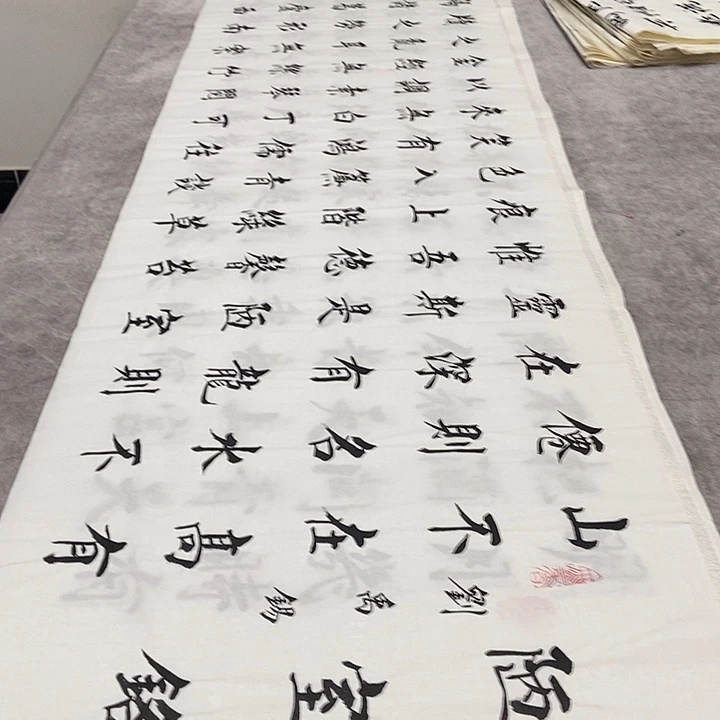 陋室銘
劉禹錫
山不在高有
僊則名水不
在深有龍則
靈斯是陋室
惟吾德馨苔
痕上階緑草
色入簾青談
笑有鴻儒往
来無白丁可
以調素琴閱
金經無絲竹
之亂耳無案
牘之勞形南